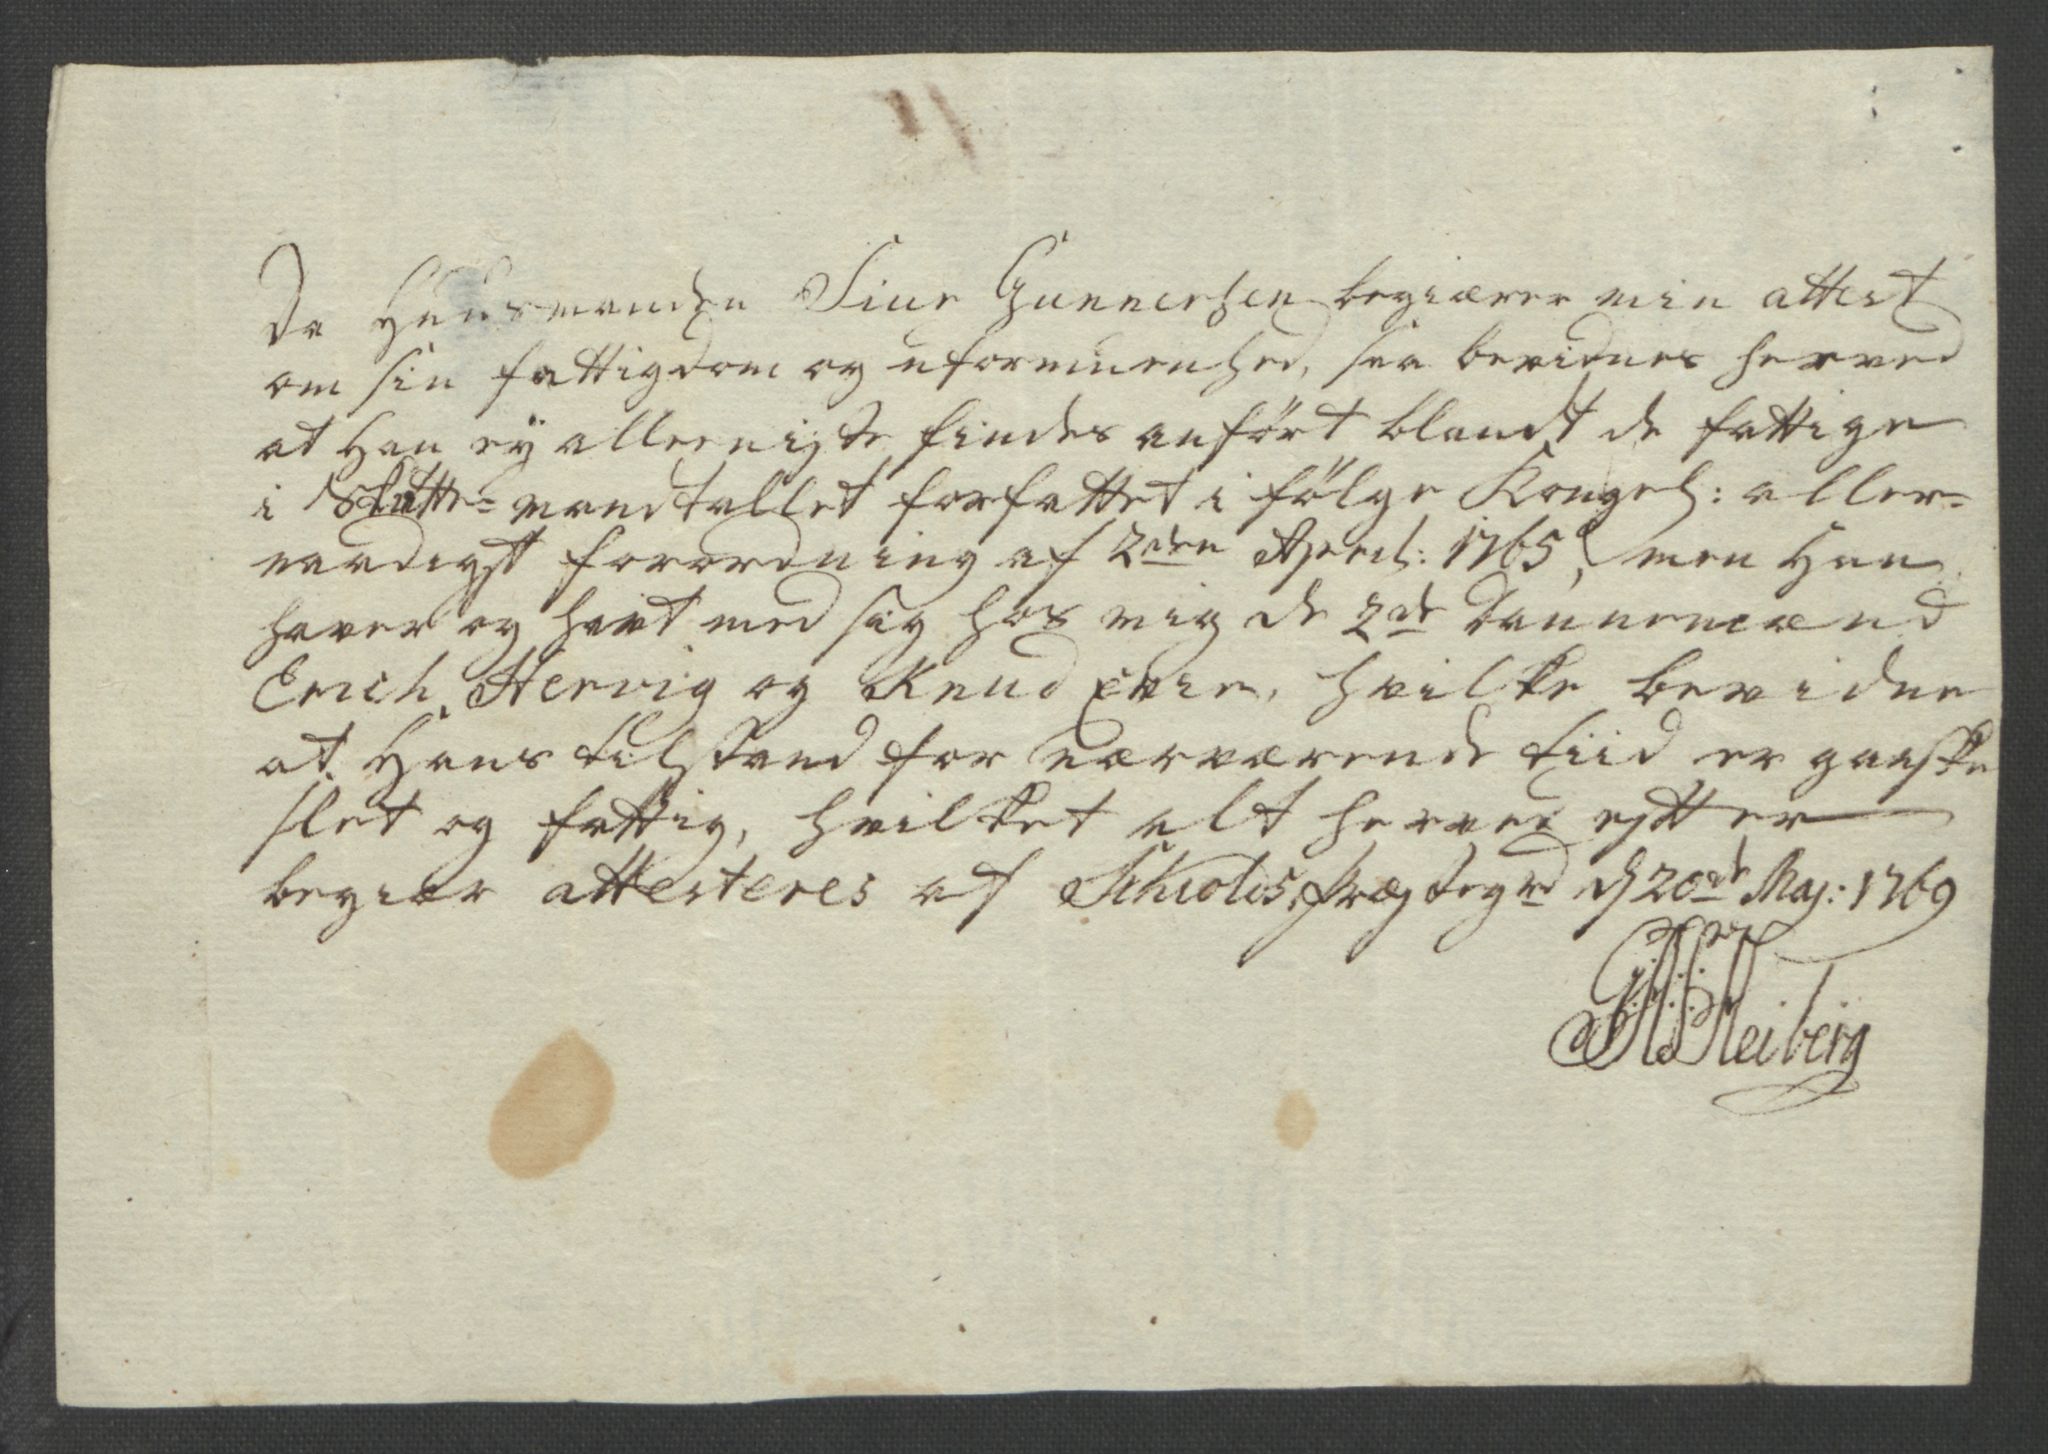 Da Huusmanden Siur Gunnersen begiærer min attest
om sin fattigdom og uformuenhed, saa bevidnes herved
at Han ey alleeniste findes anført blandt de fattige
i Skatte-mandtallet forfattet i følge Kongel: aller-
naadigst forordning af 2den April: 1765, men Han
haver og havt med sig hos mig de 2de Dannemænd
Erich Hervig og Knud Evie, hvilke bevidne
at Hans tilstand for nærværende Tiid er ganske
slet og fattig, hvilket alt herved efter
begiær attesteres af Schiolds Præstegrd d 20de Maj: 1769
Heiberg